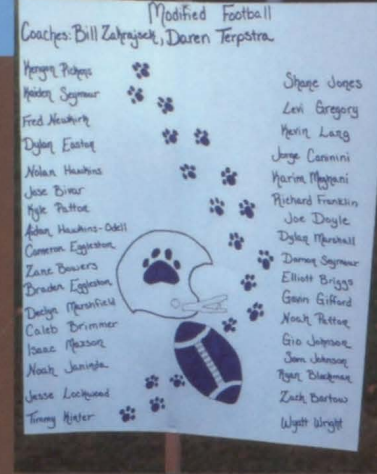 Modified Football
Coaches: Bill Zakrajsek, Daren Terpstra
Kenyon Pickens
Kaiden Seymour
Fred Newkirk
Dylan Easton
Nolan Hawkins
Jose Bivar
Kyle Patton
Aidan Hawkins-Odell
Cameron Eggleston
Zane Bowers
Braden Eggleston
Declyn Marshfield
Caleb Brimmer
Isaac Maxson
Noah Janinda
Jesse Lockwood
Timmy Kinter
Shane Jones
Levi Gregory
Kevin Lang
Jorge
Karim
Richard Franklin
Joe Doyle
Dylan Marshall
Damon Seymour
Elliott Briggs
Gavin Gifford
Noah Patton
Gio Johnson
Sam Johnson
Ryan Blackman
Zach Bartow
Wyatt Wright